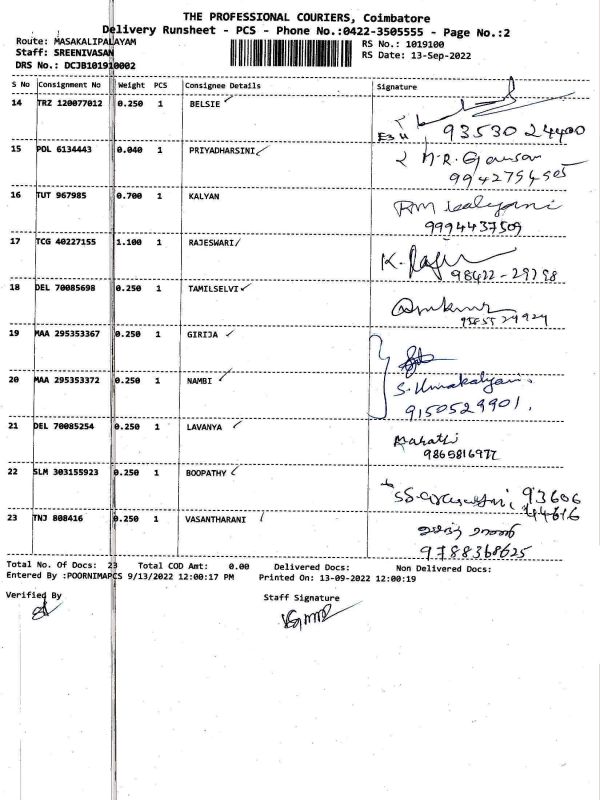 THE PROFESSIONAL COURIERS, Coimbatore
Delivery Runsheet - PCS - Phone No.:0422-3505555 - Page No.:2
Route: MASAKALIPALAYAM
RS No.: 1019100
Staff: SREENIVASAN
RS Date: 13-Sep-2022
DRS No.: DCJB101910002
S No Consignment No Weight PCS Consignee Details Signature
14 TRZ 120077012 0.250 1 BELSIE
93530 24400
15 POL 6134443 0.040 1 PRIYADHARSINI
16 TUT 967985 0.700 1 KALYAN
9994437509
17 TCG 40227155 1.100 1 RAJESWARI
98422-29298
18 DEL 70085698 0.250 1 TAMILSELVI
19 MAA 295353367 0.250 1 GIRIJA
20 MAA 295353372 0.250 1 NAMBI
S. Umakalyani.
9150529901.
21 DEL 70085254 0.250 1 LAVANYA
Marathi
9865816977
22 SLM 303155923 0.250 1 BOOPATHY
93606
44616
23 TNJ 808416 0.250 1 VASANTHARANI
9788368625
Total No. Of Docs: 23 Total COD Amt: 0.00 Delivered Docs: Non Delivered Docs:
Entered By :POORNIMAPCS 9/13/2022 12:00:17 PM Printed On: 13-09-2022 12:00:19
Verified By
Staff Signature